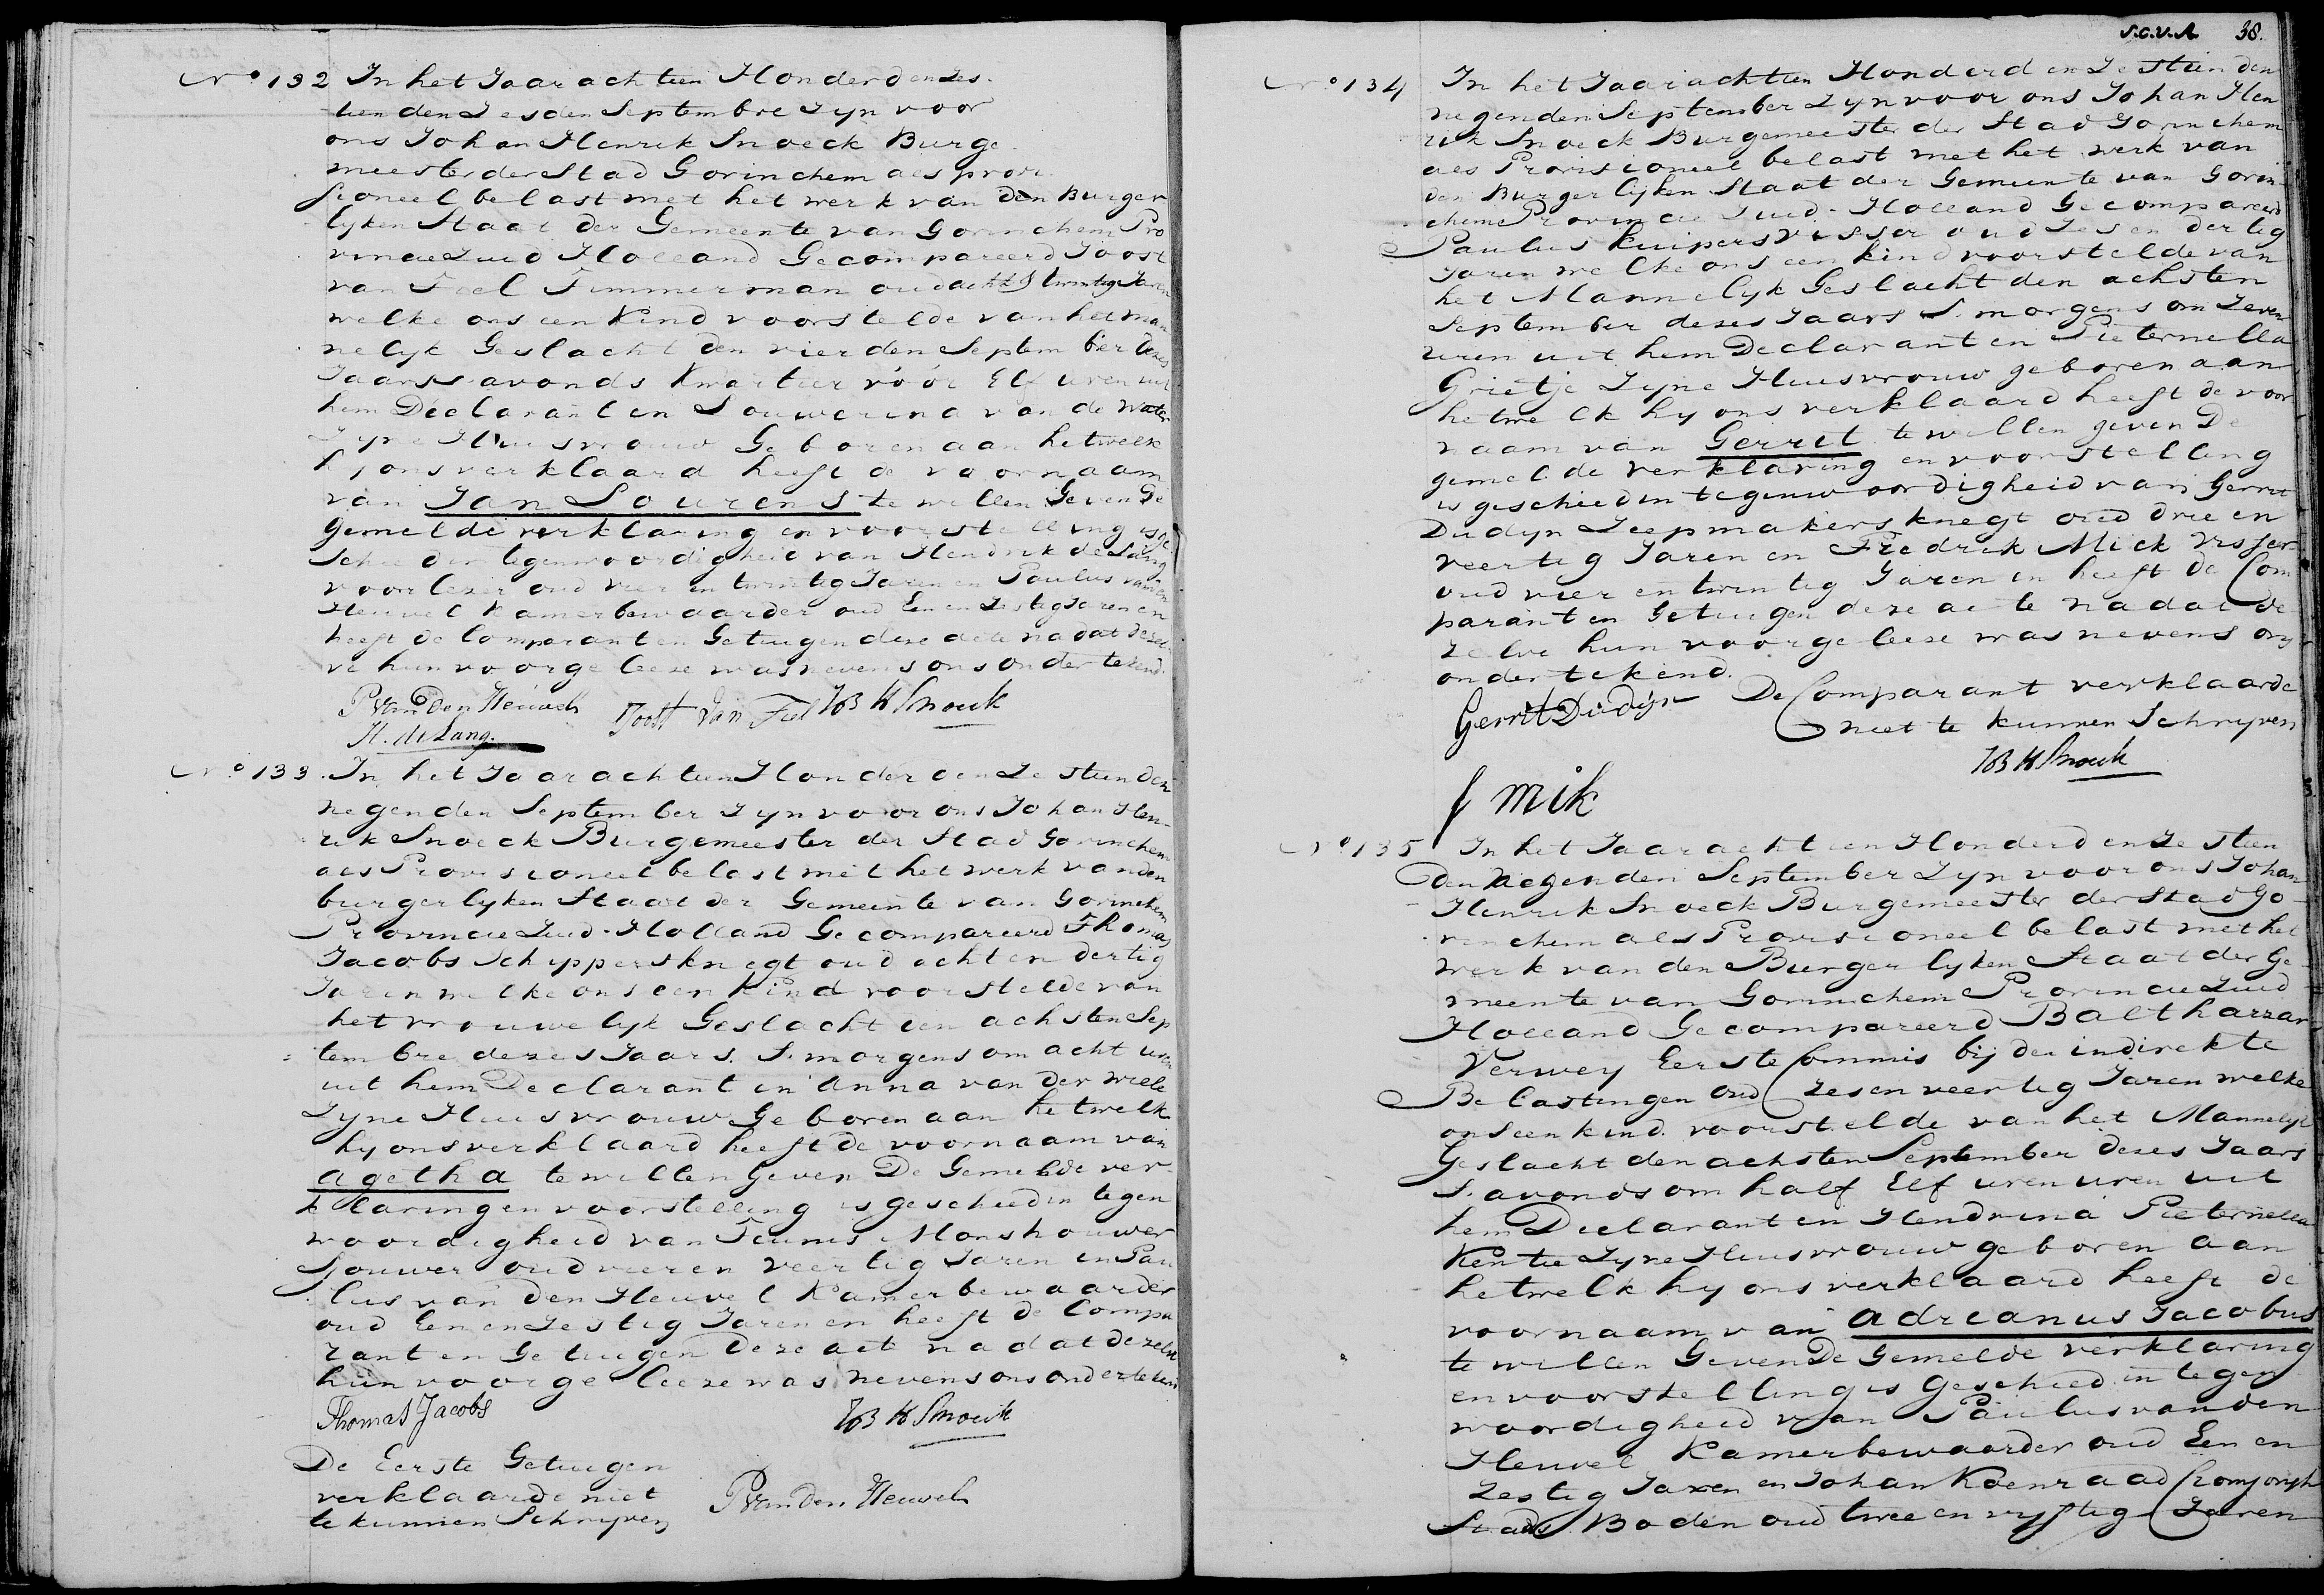 No 132 In het Jaar achtien Honderd en Zes-
tien den Zesden Septembre Zyn voor
ons Johan Henrik Snoeck Burge
meester der Stad Gorinchem als provi
sioneel belast met het werk van den Burger
lyken Staat der Gemeente van Gorinchem Pro
vincie Zuid Holland Gecompareerd Joost
van Tiel Timmerman oud acht & twintig Jaren
welke ons een Kind voorstelde van het man
nelyk Geslacht den vierden September dezes
Jaars s avonds Kwartier vóór Elf uren uit
hem Declarant en Louwerina van de Water
Zyne Huisvrouw Geboren aan hetwelk
hy ons verklaard heeft de voornaam
van Jan Lourens te willen Geven De
Gemelde verklaring en voorstelling is ge
schied in tegenwoordigheid van Hendrik de Lang
voorlezer oud vier en twintig Jaren en Paulus van den
Heuvel Kamerbewaarder oud Een en Zestig Jaren en
heeft de Comparant en Getuigen deze acte na dat dezel
ve hun voorgeleeze was nevens ons ondertekend.
P van Den Heuvel Joost van Tiel JB H Snoeck
H. de Lang.
No 133. In het Jaar achtien Honderd en Zestien den
negenden September Zyn voor ons Johan Hen-
rik Snoeck Burgemeester der Stad Gorinchem
als Provisioneel belast met het werk van den
burgerlyken Staat der Gemeente van Gorinchem
Provincie Zuid-Holland Gecompareerd Thomas
Jacobs Schippersknegt oud acht en dertig
Jaren welke ons een Kind voorstelde van
het vrouwelyk Geslacht den achsten Sep
tembre dezes Jaars. S. morgens om acht uren
uit hem Declarant en Anna van der Wiele
Zyne Huisvrouw Geboren aan hetwelk
hy ons verklaard heeft de voornaam van
agetha te willen Geven De Gemelde ver-
klaring en voorstelling is geschied in tegen
woordigheid van Teunis Monshouwer
Sjouwer oud vier en veertig Jaren en Pau
lus van den Heuvel Kamerbewaarder
oud Een en Zestig Jaren en heeft de Compa
rant en Getuigen Deze acte na dat dezelve
hun voorgeleeze was nevens ons ondertekend
Thomas Jacobs JB H Snoeck
De Eerste Getuigen
verklaarde niet
te kunnen Schryven P van Den Heuvel
S.C.V.A. 38.
No 134 In het Jaar achtien Honderd en Zestien den
negenden September Zyn voor ons Johan Hen
rik Snoeck Burgemeester der Stad Gorinchem
als Provisioneel belast met het werk van
den Burgerlyken Staat der Gemeente van Gorin-
chem Provincie Zuid-Holland Gecompareerd
Paulus Kuipers Visser oud Zes en dertig
Jaren welke ons een kind voorstelde van
het Mannelyk Geslacht den achsten
September dezes Jaars S. morgens om Zeven
uren uit hem Declarant en Pieternella
Grietje Zyne Huisvrouw geboren aan
hetwelk hy ons verklaard heeft de voor
naam van Gerret te willen geven De
gemelde verklaring en voorstelling
is geschied in tegenwoordigheid van Gerret
Dudyn Zeepmakersknegt oud drie en
veertig Jaren en Fredrik Mick Visser
oud vier en twintig Jaren en heeft de Com
parant en Getuigen deze acte na dat de
zelve hun voorgeleeze was nevens ons
ondertekend.
Gerrit Dudijn De Comparant verklaarde
niet te kunnen Schryven
JB H Snoeck
f mik
No 135 In het Jaar achtien Honderd en Zestien
Den Negenden September Zyn voor ons Johan
Henrik Snoeck Burgemeester der Stad Go-
rinchem als Provisioneel belast met het
werk van den Burgerlyken Staat der Ge-
meente van Gorinchem Provincie Zuid
Holland Gecompareerd Baltharzar
Verwey Eerste Commis bij de indirekte
Belastingen oud Zes en veertig Jaren welke
ons een kind voorstelde van het Mannelyk
Geslacht den achsten September dezes Jaars
S. avonds om half Elf uren uren uit
hem Declarant en Hendrina Pieternella
Kentie Zyne Huisvrouw geboren aan
hetwelk hy ons verklaard heeft de
voornaam van adrianus Jacobus
te willen Geven De Gemelde verklaring
en voorstelling is Geschied in tegen
woordigheid van Paulus van den
Heuvel Kamerbewaarder oud Een en
Zestig Jaren en Johan Koenraad
Stads Boden oud twee en vyftig Jaren